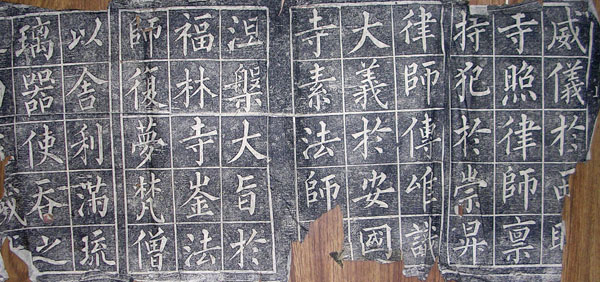 威儀於西
寺照律師稟
持犯於崇昇
律師傳唯識
大義於安國
寺素法師
涅槃大旨於
福林寺崟法
師復夢梵僧
以舍利滿琉
璃器使吞之